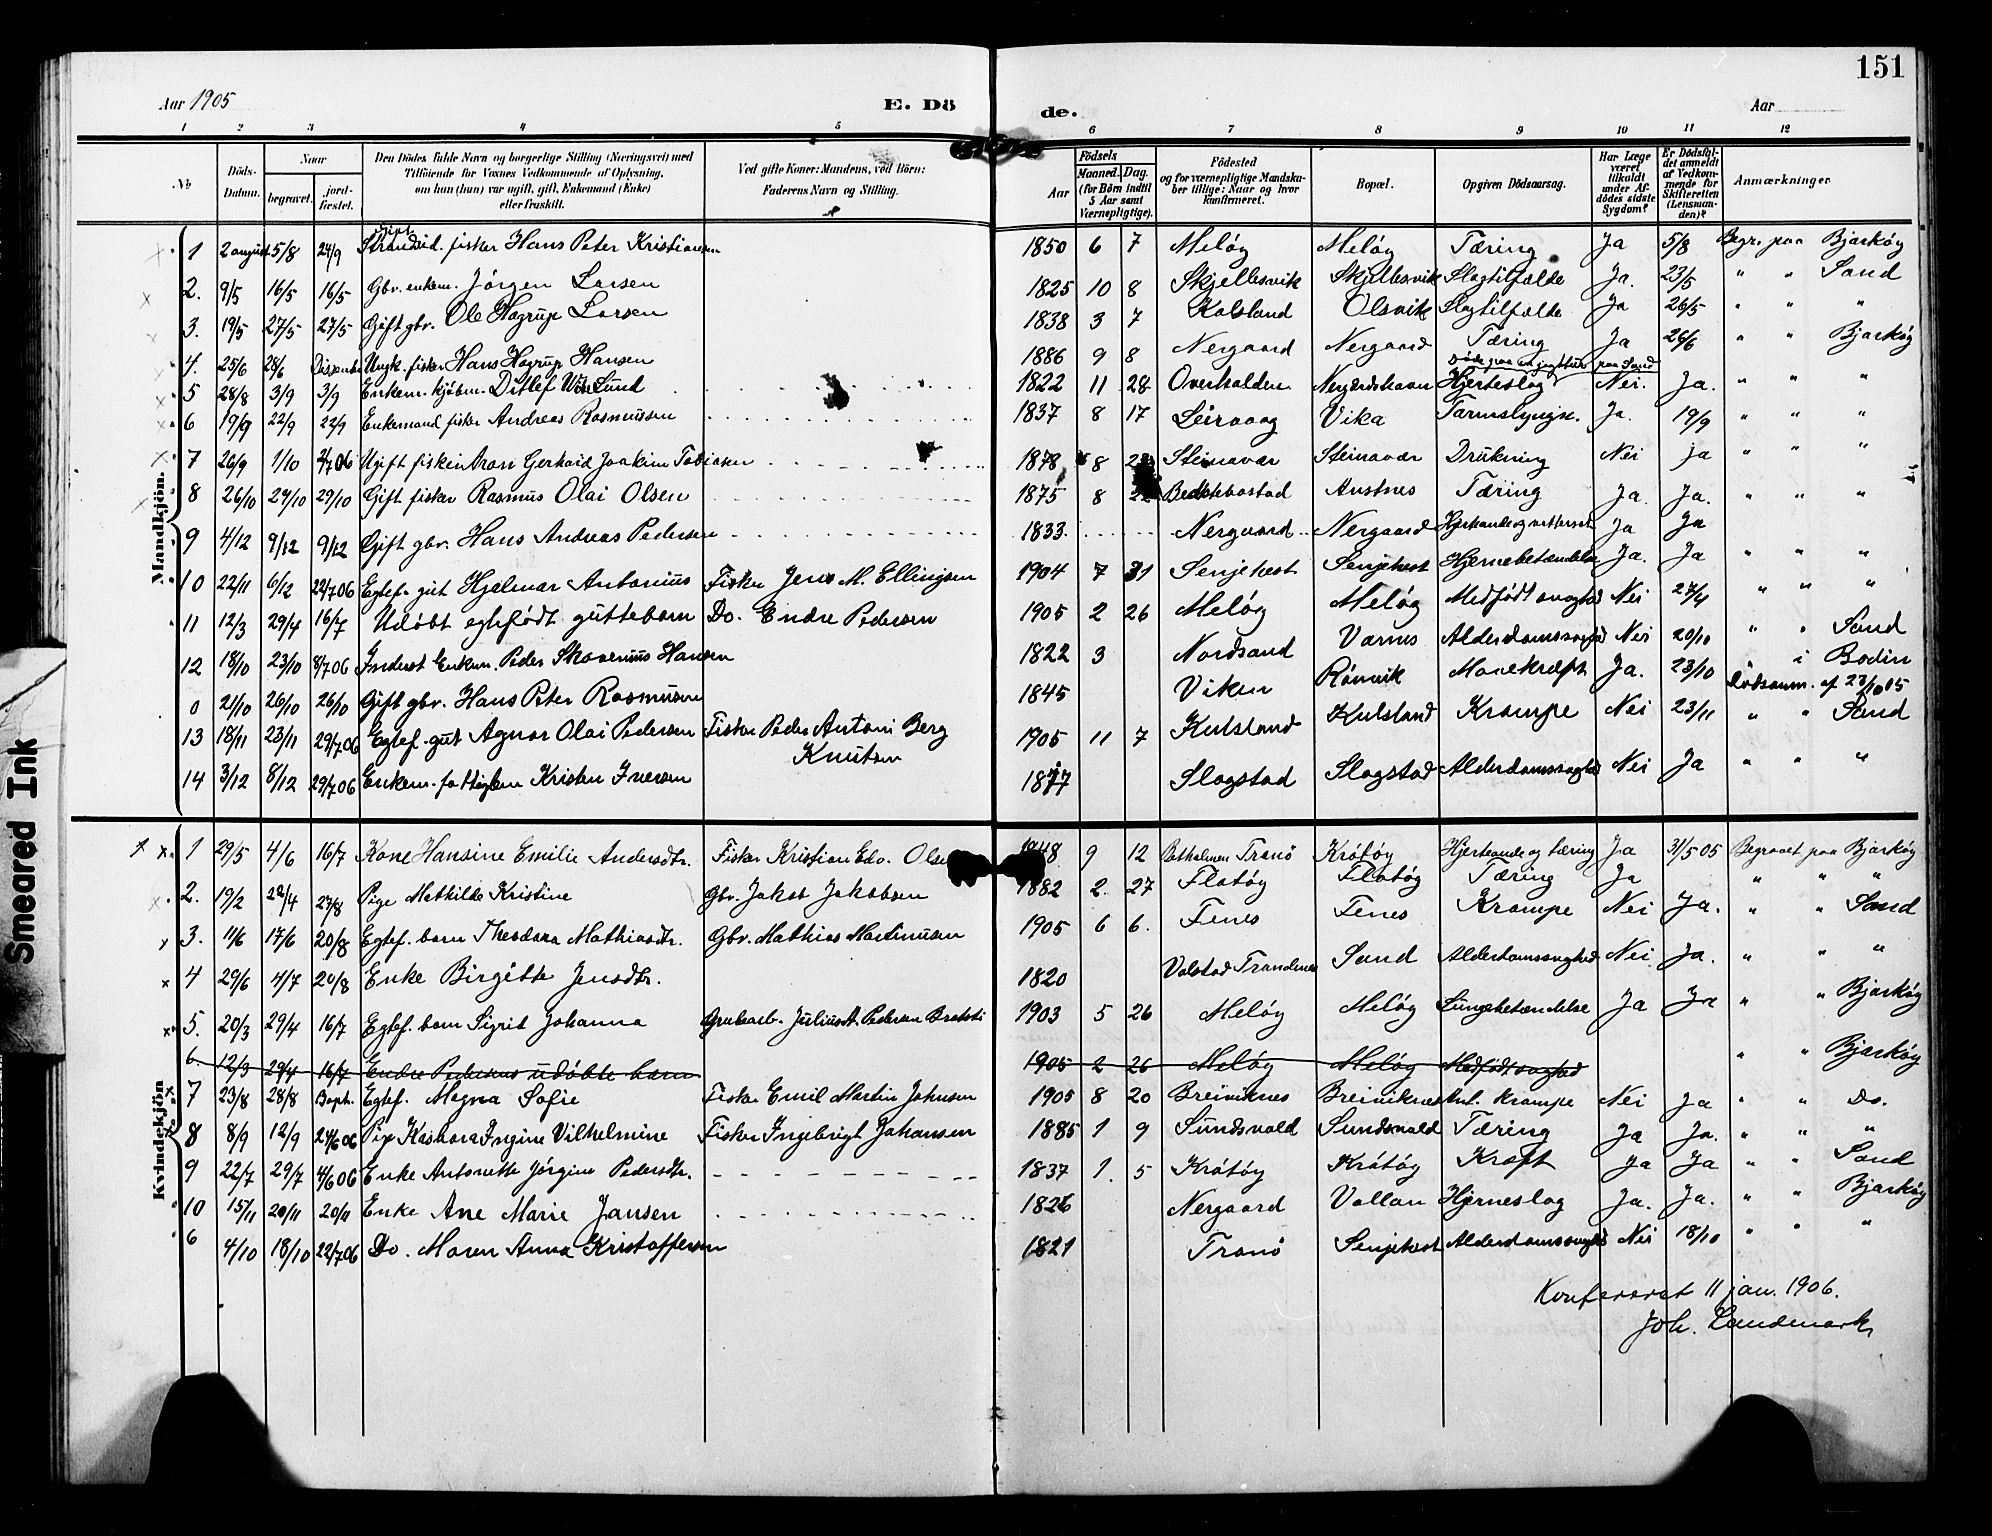 151
Aar 1905 E. Dö de. Aar
1 2 3 4 5 6 7 8 9 10 11 12
No. Döds-Datum. Naar begravet. jord-fæstet. Den Dödes fulde Navn og borgerlige Stilling (Næringsvei) med Tilföiende for Voxnes Vedkommende af Oplysning, om hun (han) var ugift, gift, Enkemand (Enke) eller fraskilt. Ved gifte Koner: Mandens, ved Börn: Faderens Navn og Stilling. Födsels Aar Maaned. Dag. (for Börn indtil 5 Aar samt Værnepligtige). Födested og for værnepligtige Mandskaber tillige: Naar og hvor konfirmeret. Bopæl. Opgiven Dödsaarsag. Har Læge været tilkaldt under Afdödes sidste Sygdom? Er Dödsfaldet anmeldt af Vedkommende for Skifteretten (Lensmanden)? Anmærkninger
Mandkjön.
1 2 august 5/8 24/9 gift Strandsid. fisker Hans Peter Kristiansen 1850 6 7 Meløy Meløy Tæring Ja 5/8 Begr. paa Bjarkøy
2. 9/5 16/5 16/5 Gbr. enkem. Jørgen Larsen 1825 10 8 Skjellesvik Skjellesvik Slagtilfælde Ja. 23/5 " " Sand
3. 19/5 27/5 27/5 Gift gbr. Ole Hagrup Larsen 1838 3 7 Kalsland Olsvik Slagtilfælde Ja 26/5 " " "
4. 25/6 28/6 Ungk. fisker Hans Hagrup Hansen 1886 9 8 Nergaard Nergaard Tæring Ja 26/6 " " Bjarkøy
5 28/8 3/9 3/9 Enkem. kjøbm. Ditlef Lund 1822 11 28 Overhalden Nergårdshavn Hjerteslag Nei. Ja. " " "
6 19/9 22/9 22/9 Enkemand fisker Andreas Rasmussen 1837 8 17 Leirvaag Vika Tarmslyngn. Ja. 19/9 " " "
7 26/9 1/10 Ugift fisker Aron Gerhard Joakim Tobiasen 1878 8 Steinavær Steinavær Drukning Nei ja " " "
8 26/10 29/10 29/10 Gift fisker Rasmus Olai Olsen 1875 8 Austnes Tæring Ja. Ja. " " "
9 4/12 9/12 9/12 Gift gbr. Hans Andreas Pedersen 1833. Nergaard Nergaard Ja Ja " " "
10 22/11 6/12 22/7 06 Egtef. gut Hjalmar Antonius Fisker Jens M. Ellingsen 1904 7 31 Senjehest Senjehest Hjernebetændelse Ja. Ja " " "
11 12/3 29/4 16/7 Udøbt egtefødt guttebarn Do. Endre Pedersen 1905 2 26 Meløy Meløy Medfødt svaghed Nei 27/4 " " "
12 18/10 23/10 8/7 06 Inderst Enkem. Peder Skavenius Hansen 1822 3 Nordsand Varnes Alderdomssvaghed Nei 20/10 " " Sand
0 21/10 26/10 26/10 Gift gbr. Hans Peter Rasmussen 1845 Viken Rönvik Mavekræft Ja. 23/10 " i Bodin
Dødsanm. af 23/10 05
13 18/11 23/11 29/7 06 Egtef. gut Agnar Olai Pedersen Fisker Peder Antoni Berg Knutsen 1905 11 7 Kulsland Kulsland Krampe Nei 23/11 " " Sand
14 3/12 8/12 29/7 06 Enkem. fattiglem Kristen Iversen Slagstad Slagstad Alderdomssvaghed Nei Ja " " "
Kvindekjön
1 29/5 4/6 16/7 Kone Hansine Emilie Andersdtr. Fisker Kristian Edv. Olsen 1848 9 12 Tranö Krøtøy Hjerteonde og tæring Ja 31/5 05 Begravet paa Bjarkøy
2. 19/2 22/4 27/8 Pige Mathilde Kristine Gbr. Jakob Jakobsen 1882 2. 27 Flatøy Flatøy Tæring Ja " " "
3. 11/6 17/6 20/8 Egtef. barn Theodora Mathiasdtr. Gbr. Mathias Martinusen 1905 6 6. Fenes Fenes Krampe Nei Ja. " " Sand
4 29/6 4/7 20/8 Enke Birgitte Jensdtr. 1820 Valstad Trandenes Sand Alderdomssvaghed Nei Ja. " " "
5. 20/3 29/4 16/7 Egtef. barn Sigrid Johanna Grubearb. Julius A. Pedersen 1903 5 26 Meløy Meløy Lungebetændelse Ja Ja " " Bjarkøy
6. 12/3 29/4 16/7 Endre Pedersens udöbte barn 1905 2 26 Meløy Meløy Medfödt svaghed " " Bjarkøy
7 23/8 28/8 Egtef. Magna Sofie Fisker Emil Martin Johnsen 1905 8 20 Breiviknes Breiviknes Krampe Nei Ja " " Do.
8 8/9 12/9 24/6 06 Pige Ingine Vilhelmine Fisker Ingebrigt Johansen 1885 1 9 Sundsvold Sundsvold Tæring Ja Ja. " " "
9 22/7 29/7 4/6 06 Enke Antonette Jörgine Pedersdtr. 1837 1. 5 Krøtøy Krøtøy Kræft Ja Ja " " Sand
10 15/11 20/11 20/11 Enke Ane Marie Jansen 1826 Nergaard Vollan Hjerneslag Ja. Ja. " " Bjarkøy
6 4/10 18/10 22/7 06 Do. Maren Anna Kristoffersen 1821 Tranö Senjehest Alderdomssvaghed Nei 18/10 " " "
Konfereret 11 jan. 1906.
Joh. Landmark
Smeared Ink